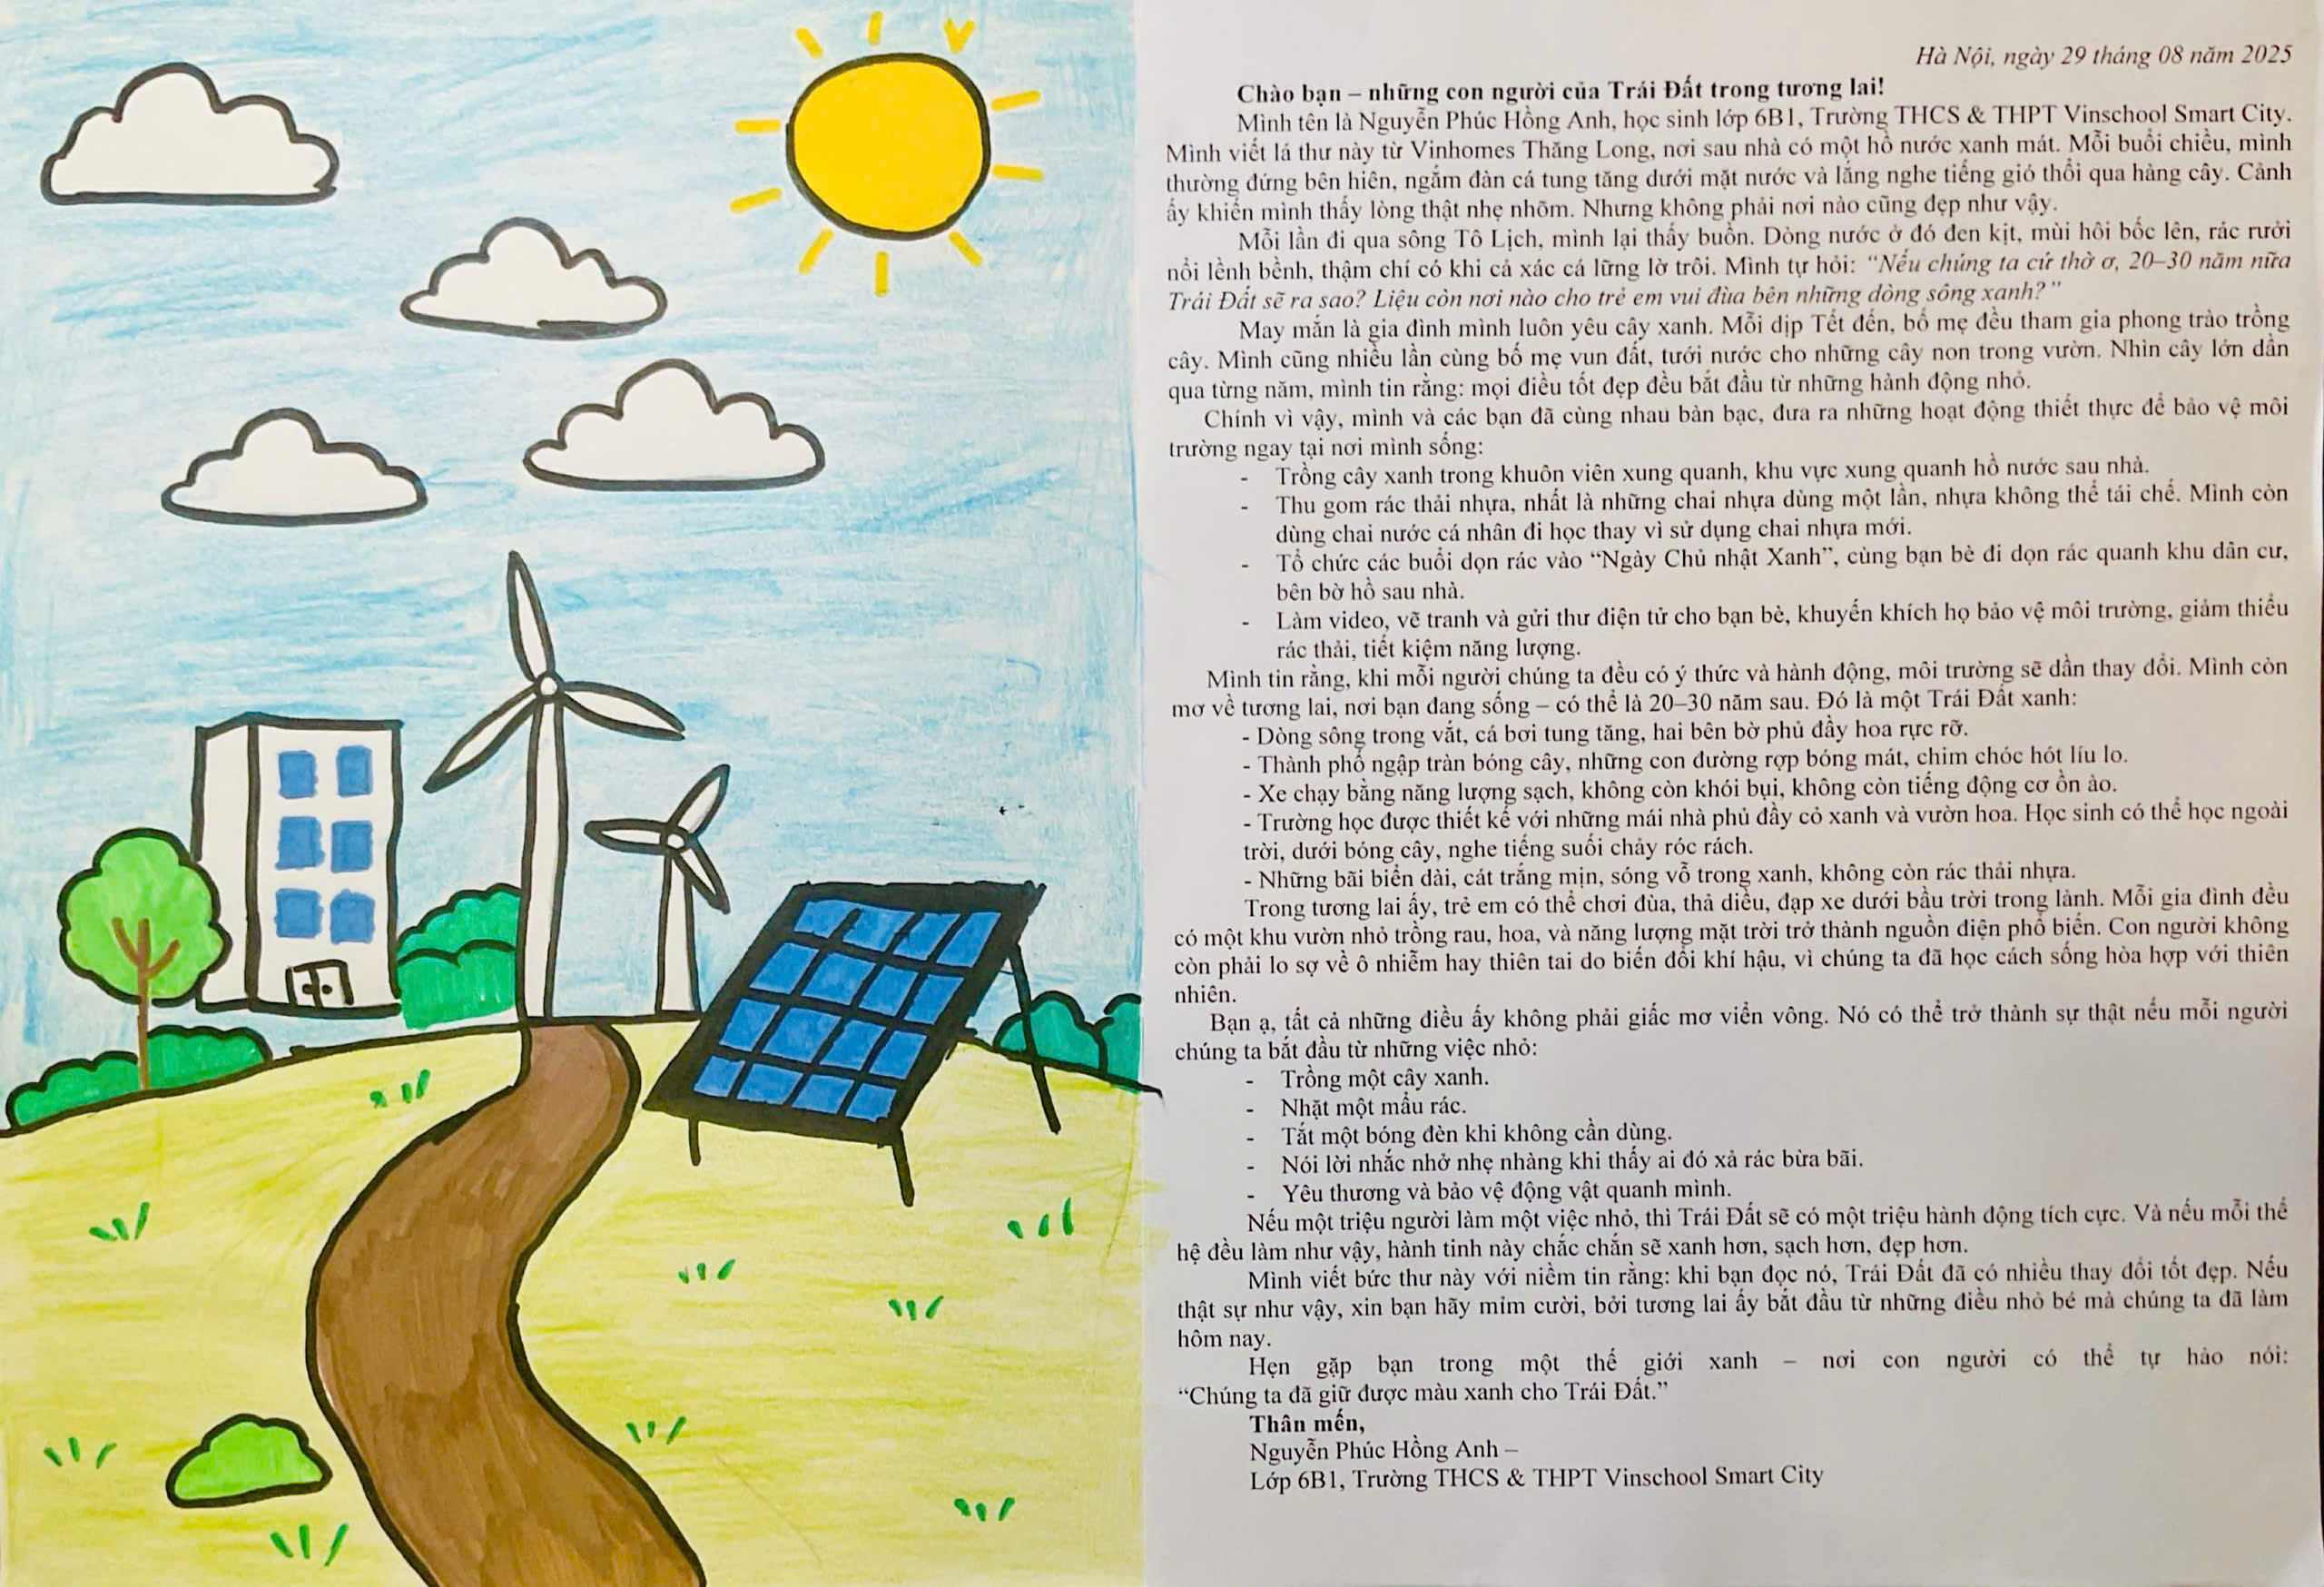 Hà Nội, ngày 29 tháng 08 năm 2025
Chào bạn – những con người của Trái Đất trong tương lai!
Mình tên là Nguyễn Phúc Hồng Anh, học sinh lớp 6B1, Trường THCS & THPT Vinschool Smart City.
Mình viết lá thư này từ Vinhomes Thăng Long, nơi sau nhà có một hồ nước xanh mát. Mỗi buổi chiều, mình
thường đứng bên hiên, ngắm đàn cá tung tăng dưới mặt nước và lắng nghe tiếng gió thổi qua hàng cây. Cảnh
ấy khiến mình thấy lòng thật nhẹ nhõm. Nhưng không phải nơi nào cũng đẹp như vậy.
Mỗi lần đi qua sông Tô Lịch, mình lại thấy buồn. Dòng nước ở đó đen kịt, mùi hôi bốc lên, rác rưởi
nổi lềnh bềnh, thậm chí có khi cả xác cá lững lờ trôi. Mình tự hỏi: “Nếu chúng ta cứ thờ ơ, 20–30 năm nữa
Trái Đất sẽ ra sao? Liệu còn nơi nào cho trẻ em vui đùa bên những dòng sông xanh?”
May mắn là gia đình mình luôn yêu cây xanh. Mỗi dịp Tết đến, bố mẹ đều tham gia phong trào trồng
cây. Mình cũng nhiều lần cùng bố mẹ vun đất, tưới nước cho những cây non trong vườn. Nhìn cây lớn dần
qua từng năm, mình tin rằng: mọi điều tốt đẹp đều bắt đầu từ những hành động nhỏ.
Chính vì vậy, mình và các bạn đã cùng nhau bàn bạc, đưa ra những hoạt động thiết thực để bảo vệ môi
trường ngay tại nơi mình sống:
- Trồng cây xanh trong khuôn viên xung quanh, khu vực xung quanh hồ nước sau nhà.
- Thu gom rác thải nhựa, nhất là những chai nhựa dùng một lần, nhựa không thể tái chế. Mình còn
dùng chai nước cá nhân đi học thay vì sử dụng chai nhựa mới.
- Tổ chức các buổi dọn rác vào “Ngày Chủ nhật Xanh”, cùng bạn bè đi dọn rác quanh khu dân cư,
bên bờ hồ sau nhà.
- Làm video, vẽ tranh và gửi thư điện tử cho bạn bè, khuyến khích họ bảo vệ môi trường, giảm thiểu
rác thải, tiết kiệm năng lượng.
Mình tin rằng, khi mỗi người chúng ta đều có ý thức và hành động, môi trường sẽ dần thay đổi. Mình còn
mơ về tương lai, nơi bạn đang sống – có thể là 20–30 năm sau. Đó là một Trái Đất xanh:
- Dòng sông trong vắt, cá bơi tung tăng, hai bên bờ phủ đầy hoa rực rỡ.
- Thành phố ngập tràn bóng cây, những con đường rợp bóng mát, chim chóc hót líu lo.
- Xe chạy bằng năng lượng sạch, không còn khói bụi, không còn tiếng động cơ ồn ào.
- Trường học được thiết kế với những mái nhà phủ đầy cỏ xanh và vườn hoa. Học sinh có thể học ngoài
trời, dưới bóng cây, nghe tiếng suối chảy róc rách.
- Những bãi biển dài, cát trắng mịn, sóng vỗ trong xanh, không còn rác thải nhựa.
Trong tương lai ấy, trẻ em có thể chơi đùa, thả diều, đạp xe dưới bầu trời trong lành. Mỗi gia đình đều
có một khu vườn nhỏ trồng rau, hoa, và năng lượng mặt trời trở thành nguồn điện phổ biến. Con người không
còn phải lo sợ về ô nhiễm hay thiên tai do biến đổi khí hậu, vì chúng ta đã học cách sống hòa hợp với thiên
nhiên.
Bạn ạ, tất cả những điều ấy không phải giấc mơ viển vông. Nó có thể trở thành sự thật nếu mỗi người
chúng ta bắt đầu từ những việc nhỏ:
- Trồng một cây xanh.
- Nhặt một mẩu rác.
- Tắt một bóng đèn khi không cần dùng.
- Nói lời nhắc nhở nhẹ nhàng khi thấy ai đó xả rác bừa bãi.
- Yêu thương và bảo vệ động vật quanh mình.
Nếu một triệu người làm một việc nhỏ, thì Trái Đất sẽ có một triệu hành động tích cực. Và nếu mỗi thế
hệ đều làm như vậy, hành tinh này chắc chắn sẽ xanh hơn, sạch hơn, đẹp hơn.
Mình viết bức thư này với niềm tin rằng: khi bạn đọc nó, Trái Đất đã có nhiều thay đổi tốt đẹp. Nếu
thật sự như vậy, xin bạn hãy mỉm cười, bởi tương lai ấy bắt đầu từ những điều nhỏ bé mà chúng ta đã làm
hôm nay.
Hẹn gặp bạn trong một thế giới xanh – nơi con người có thể tự hào nói:
“Chúng ta đã giữ được màu xanh cho Trái Đất.”
Thân mến,
Nguyễn Phúc Hồng Anh –
Lớp 6B1, Trường THCS & THPT Vinschool Smart City